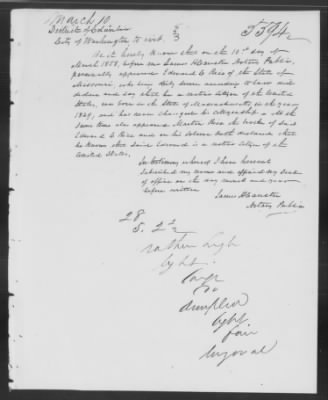 March 10
5594
District of Columbia
City of Washington to wit.
Be it hereby known that on the 10th day of
March 1858, before me James H Causten Notary Public,
personally appeared Edward E Rice of the State of
Missouri, who being duly sworn according to law
deposes and says that he is a native citizen of the United
States, was born in the State of Massachusetts in the year
and has never changed his citizenship. At the
same time also appeared the brother of said
Edward E Rice and on his solemn oath declared that
he knows that said Edward is a native citizen of the
United States.
In testimony whereof I have hereunto
subscribed my name and affixed my Seal
of office on the day month and year
before written
James H Causten
Notary Public
28
5. 2 1/2
rather high
light
large
do
dimpled
light
fair